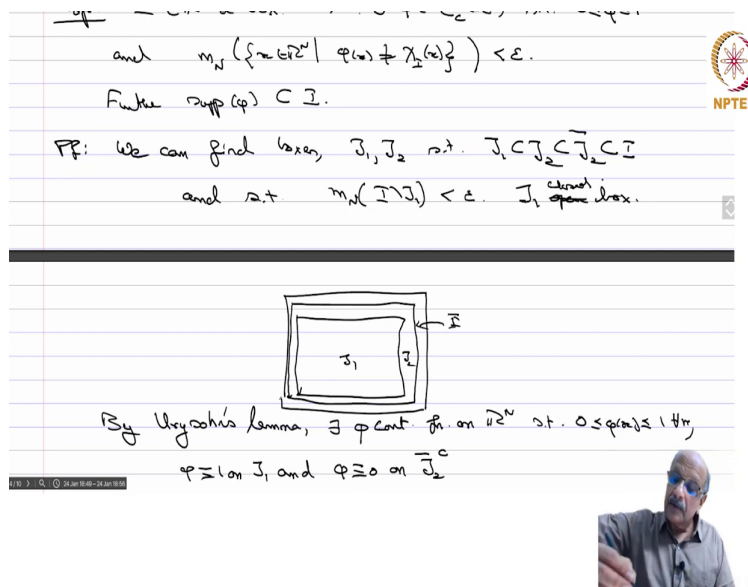 and m_N({x∈ℝ^N | φ(x) ≠ χ_I(x)}) < ε.
Further supp(φ) ⊂ I.
NPTE
Pf: We can find boxes, J₁, J₂ s.t. J₁ ⊂ J₂ ⊂ J̄₂ ⊂ I
and s.t. m_N(I \ J₁) < ε. J₁ closed box.
Ī
J₁ J₂
By Urysohn's lemma, ∃ φ cont. fn. on ℝ^N s.t. 0 ≤ φ(x) ≤ 1 ∀x,
φ ≡ 1 on J₁ and φ ≡ 0 on J̄₂^c
4/10 24 Jan 18:49 – 24 Jan 18:56